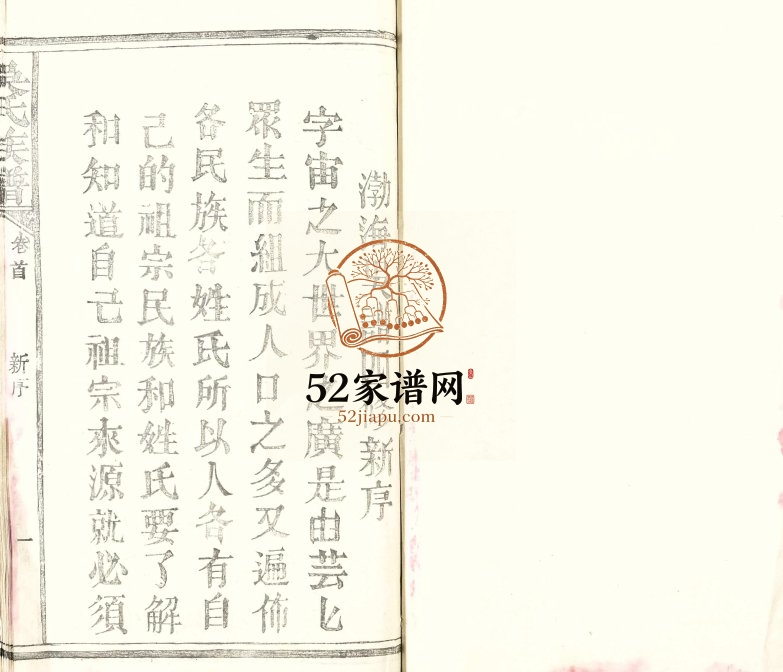 渤海新序
字宙之大世界廣是由芸匕
眾生而組成人口之多又遍佈
各民族各姓氏所以人各有自
己的祖宗民族和姓氏要了解
和知道自己祖宗來源就必須
吳氏族譜
卷首
新序
一
52家谱网
52jiapu.com